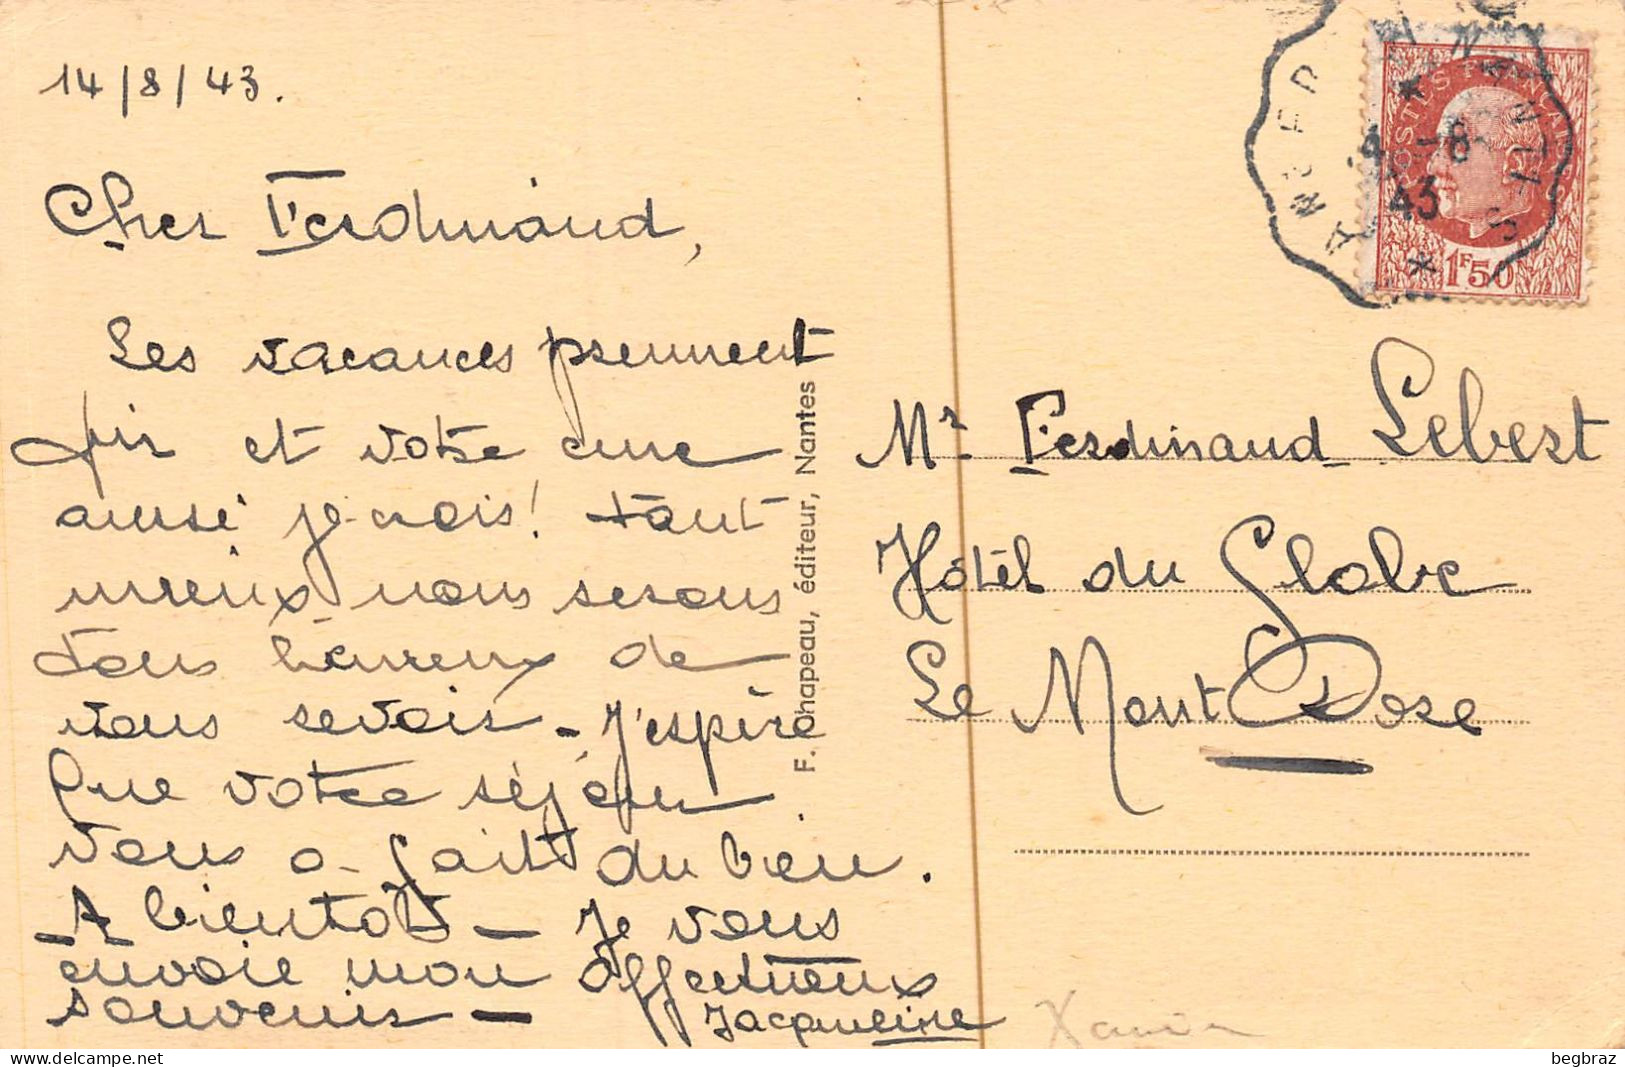 14/8/43.
Cher Ferdinand,
Les vacances prennent
fin et votre cure
aussi je crois! tant
mieux nous serons
tous heureux de
vous revoir - J'espère
que votre séjour
vous a fait du bien.
A bientôt - Je vous
envoie mon affectueux
souvenir -
Jacqueline
F. Chapeau, éditeur, Nantes
POSTES FRANÇAISES
1F50
4 -8
43
Mr Ferdinand Lebert
Hôtel du Globe
Le Mont Dore
begbraz